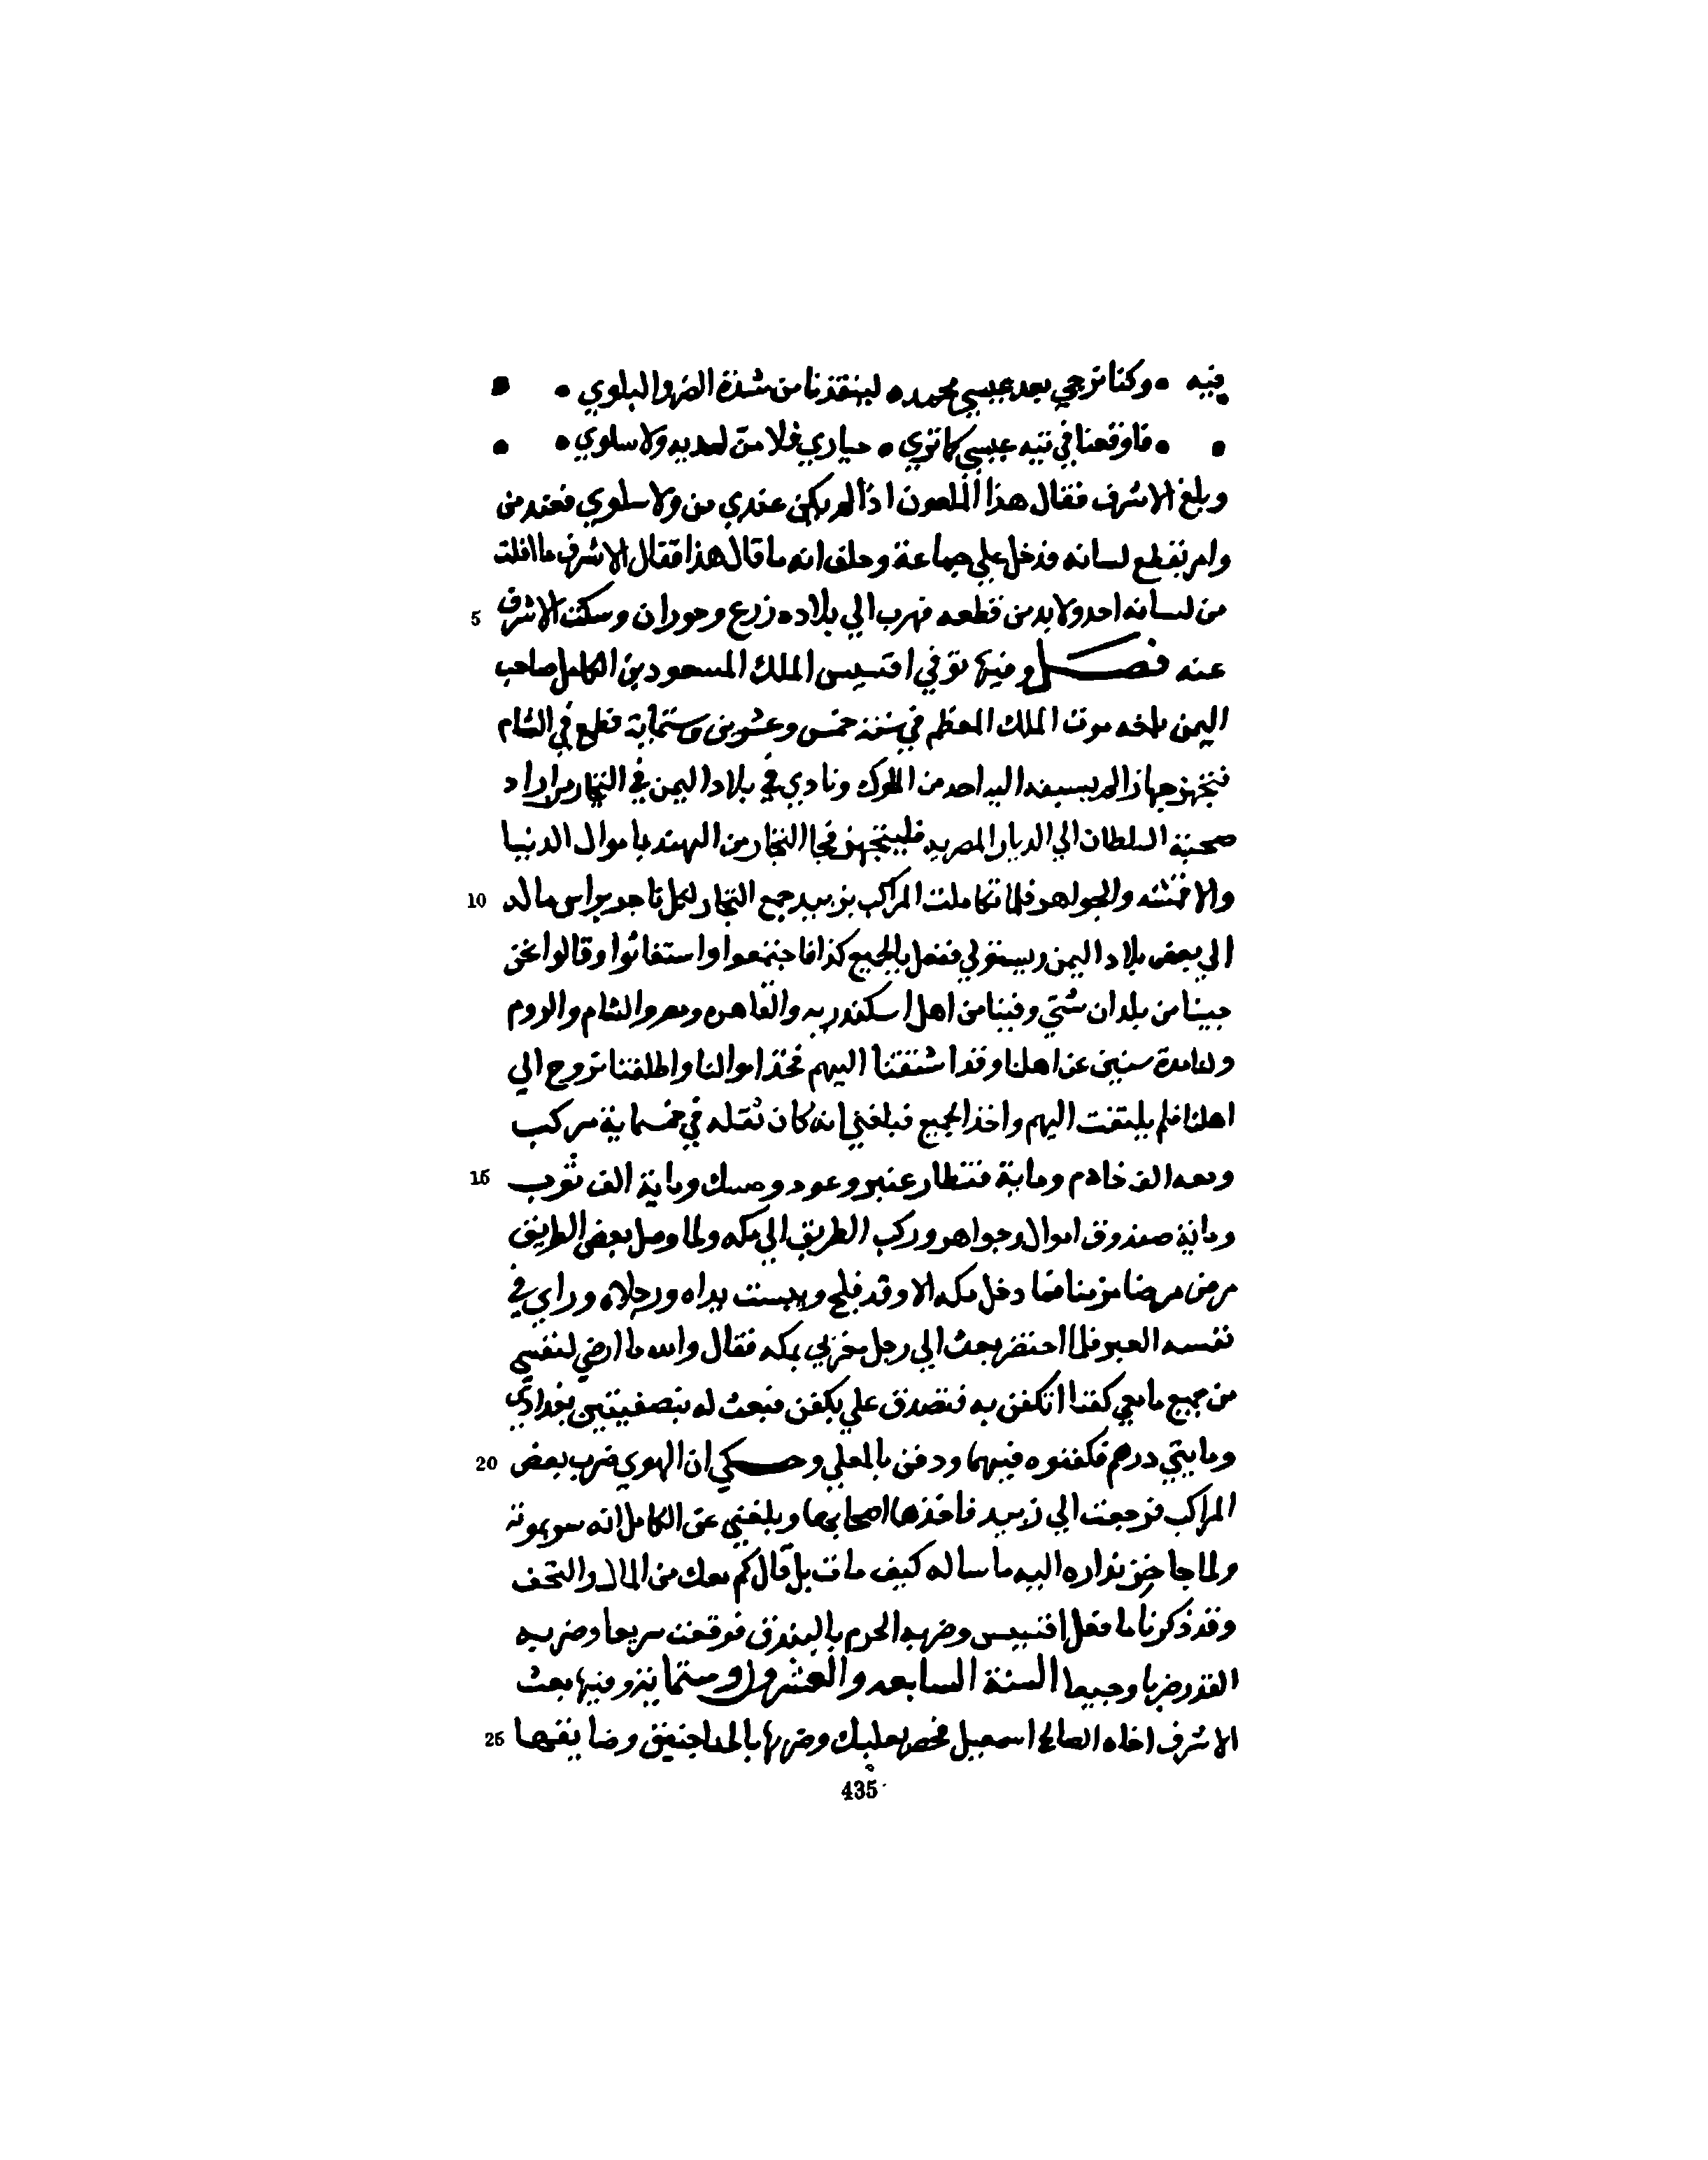 فيه • وكنا نرجي بعد عيسي محمد • لينقذنا من شدة الضر والبلوي •
• فاوقعنا في تيه عيسي كما تري • حياري فلا من لديه ولا سلوي •
وبلغ الاشرف فقال هذا الملعون اذا لم يكن عندي من ولا سلوي فعند من
وامر بقطع لسانه فدخل علي جماعة وحلف انه ما قال هذا فقال الاشرف ما افلت
من لسانه احد ولا بد من قطعه فهرب الي بلاده زرع وحوران وسكت الاشرف 5
عنه فصل وفيها توفي اقسيس الملك المسعود بن الكامل صاحب
اليمن بلغه موت الملك المعظم في سنة خمس وعشرين وستماية فطمع في الشام
فتجهز جهازا لم يسبقه اليه احد من الملوك ونادي في بلاد اليمن في التجار من اراد
صحبة السلطان الي الديار المصريه فليتجهز فجا التجار من الهند باموال الدنيا
والاقمشه والجواهر فلما تكاملت المراكب بزبيد جمع التجار لكل تاجر براس ماله 10
الي بعض بلاد اليمن ويستولي ففعل بالجميع كذا فاجتمعوا واستغاثوا وقالوا نحن
جينا من بلدان شتي وفينا من اهل اسكندريه والقاهره ومصر والشام والروم
ولنا مدة سنين عن اهلنا وقد اشتقنا اليهم فخذ اموالنا واطلقنا نروح الي
اهلنا فلم يلتفت اليهم واخذ الجميع فبلغني انه كان ثقله في خمسماية مركب
ومعه الف خادم وماية قنطار عنبر وعود ومسك وماية الف ثوب 15
وماية صندوق اموال وجواهر وركب الطريق الي مكه ولما وصل بعض الطريق
مرض مرضا مزمنا فما دخل مكه الا وقد فلج ويبست يداه ورجلاه وراي في
نفسه العبر فلما احتضر بعث الي رجل مغربي بمكه فقال والله ما ارضي لنفسي
من جميع ما معي كفنا اتكفن به فتصدق علي بكفن فبعث له بنصفيتين بغدادي
ومايتي درهم فكفنوه فيهما ودفن بالمعلي وحكي ان الهوي ضرب بعض 20
المراكب فرجعت الي زبيد فاخذها اصحابها وبلغني عن الكامل انه سر بموته
ولما جا خزنداره اليه ما ساله كيف مات بل قال كم معك من المال والتحف
وقد ذكرنا ما فعل اقسيس وضربه الحرم بالبندق فوقعت سريعا وضربه
القدر ضربا وجيعا السنة السابعه والعشرون وستماية وفيها بعث
الاشرف اخاه الصالح اسمعيل فحصر بعلبك وضربها بالمناجنيق وضايقها 25
435